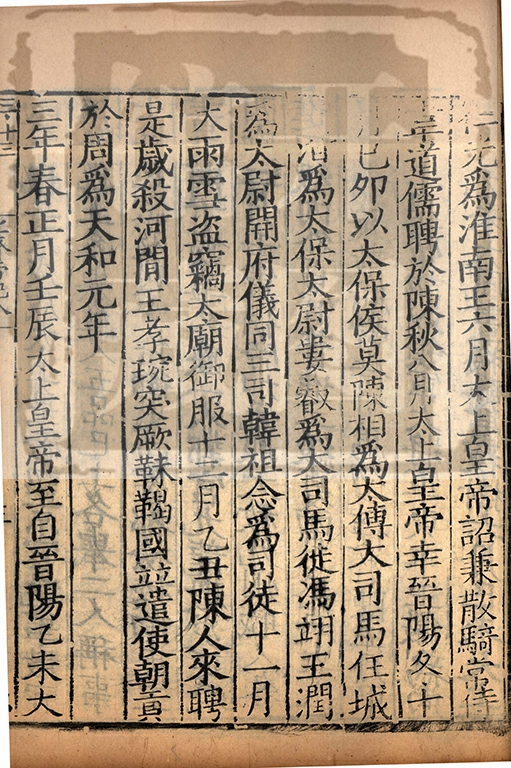 光爲淮南王六月太上皇帝詔兼散騎常侍
道儒聘於陳秋八月太上皇帝幸晉陽冬十
巳夘以太保侯莫陳相爲太傅大司馬任城
爲太保太尉婁叡爲大司馬徙馮翊王潤
爲太尉開府儀同三司韓祖念爲司徒十一月
大雨雪盜竊太廟御服十二月乙丑陳人來聘
是歲殺河間王孝琬突厥靺鞨國並遣使朝貢
於周爲天和元年
三年春正月壬辰太上皇帝至自晉陽乙未大